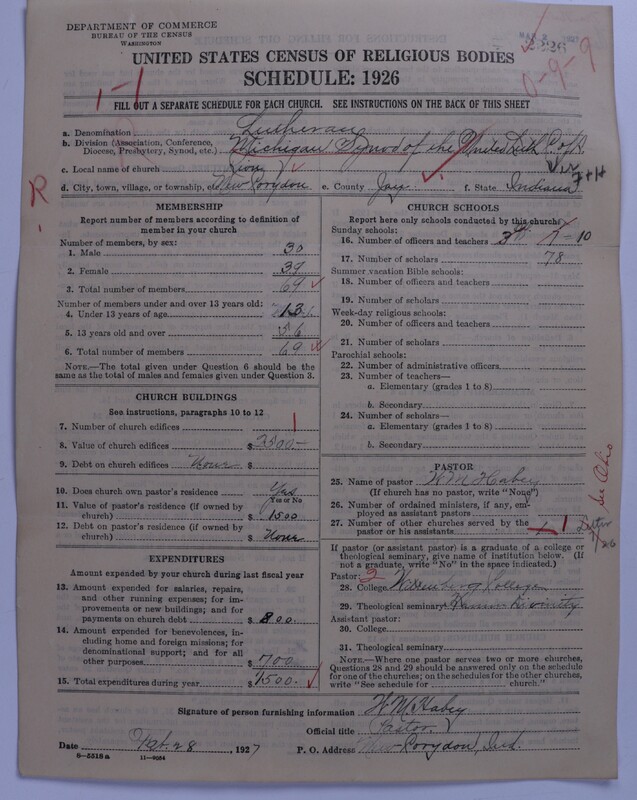 DEPARTMENT OF COMMERCE
BUREAU OF THE CENSUS
WASHINGTON
2226
UNITED STATES CENSUS OF RELIGIOUS BODIES
SCHEDULE: 1926
0-9-9
1-1
FILL OUT A SEPARATE SCHEDULE FOR EACH CHURCH. SEE INSTRUCTIONS ON THE BACK OF THIS SHEET
a. Denomination Lutheran
b. Division (Association, Conference, Diocese, Presbytery, Synod, etc.) Michigan Synod of the United Luth C. of A
c. Local name of church Zion
d. City, town, village, or township, etc. New Corydon e. County Jay f. State Indiana
R.
MEMBERSHIP
Report number of members according to definition of
member in your church
Number of members, by sex:
1. Male 30
2. Female 39
3. Total number of members 69
Number of members under and over 13 years old:
4. Under 13 years of age 13
5. 13 years old and over 56
6. Total number of members 69
NOTE.—The total given under Question 6 should be
same as the total of males and females given under Question 3.
CHURCH BUILDINGS
See instructions, paragraphs 10 to 12
7. Number of church edifices 1
8. Value of church edifices $ 2500—
9. Debt on church edifices None $
10. Does church own pastor's residence Yes
Yes or No
11. Value of pastor's residence (if owned by
church) $ 1500
12. Debt on pastor's residence (if owned by
church) $ None
EXPENDITURES
Amount expended by your church during last fiscal year
13. Amount expended for salaries, repairs,
and other running expenses; for im-
provements or new buildings; and for
payments on church debt $ 800.
14. Amount expended for benevolences,
including home and foreign missions; for
denominational support; and for all
other purposes $ 700.
15. Total expenditures during year $ 1500.
CHURCH SCHOOLS
Report here only schools conducted by this church
Sunday schools:
16. Number of officers and teachers 10
17. Number of scholars 78
Summer vacation Bible schools:
18. Number of officers and teachers
19. Number of scholars
Week-day religious schools:
20. Number of officers and teachers
21. Number of scholars
Parochial schools:
22. Number of administrative officers
23. Number of teachers—
a. Elementary (grades 1 to 8)
b. Secondary
24. Number of scholars—
a. Elementary (grades 1 to 8)
b. Secondary
PASTOR
25. Name of pastor W M Habey
(If church has no pastor, write "None")
26. Number of ordained ministers, if any, em-
ployed as assistant pastors
27. Number of other churches served by the
pastor or his assistants 1
see Ohio
If pastor (or assistant pastor) is a graduate of a college or
theological seminary, give name of institution below. (If
not a graduate, write "No" in the space indicated.)
Pastor: 2
28. College Wittenberg College
29. Theological seminary Hamma Divinity
Assistant pastor:
30. College
31. Theological seminary
NOTE.—Where one pastor serves two or more churches,
Questions 28 and 29 should be answered only on the schedule
for one of the churches; on the schedules for the other churches,
write "See schedule for church."
Signature of person furnishing information W M Habey
Official title Pastor
Date Feb. 28, 1927 P. O. Address New Corydon, Ind.
8-5518a 11-9264